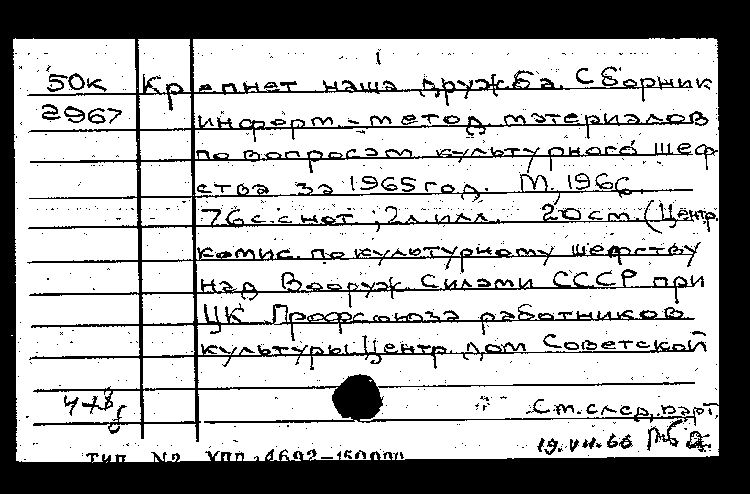 1
50к Крепнет наша дружба. Сборник
2967 информ.-метод. материалов
по вопросам культурного шеф-
ства за 1965 год. М. 1966.
76 с. с нот.; 2 л. илл. 20 см. (Центр.
комис. по культурному шефству
над Вооруж. Силами СССР при
ЦК Профсоюза работников
культуры. Центр. дом Советской
См. след. карт.
19.VII.66
тип. №2 УПП, 4692-150000